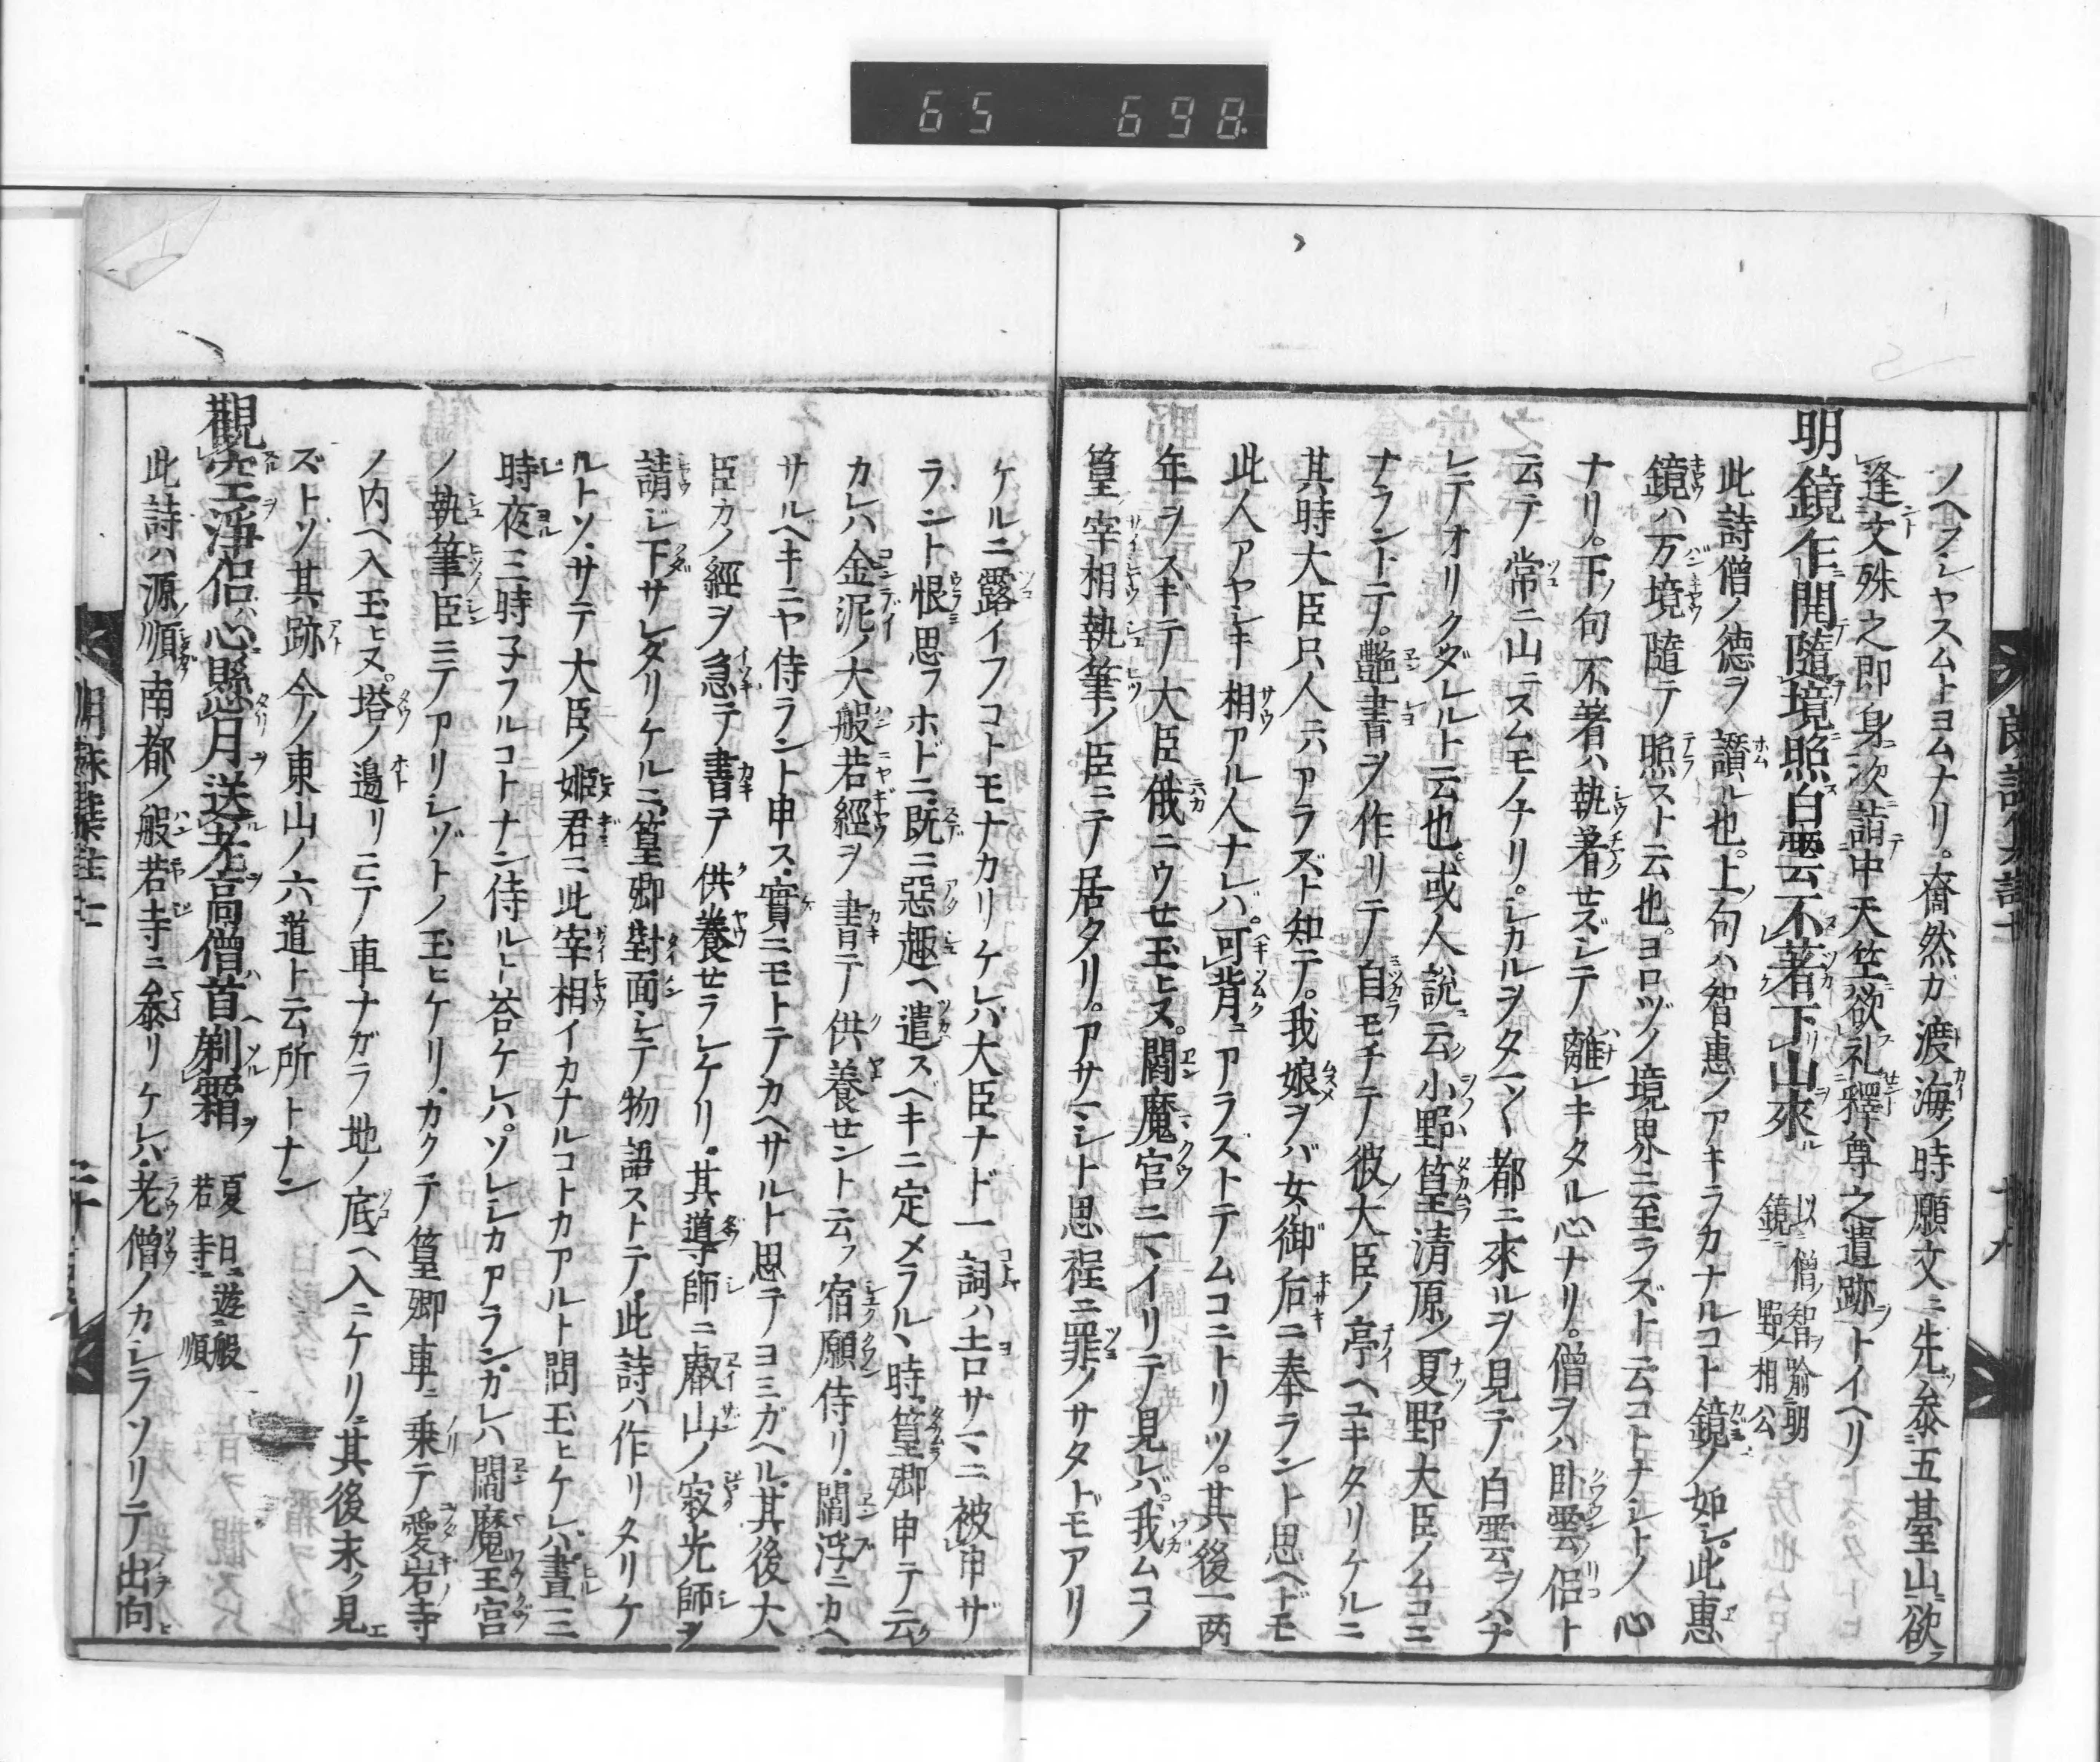 65 698
ノヘフシヤスムトヨムナリ。奝然ガ渡海ノ時願文ニ先ツ参五䑓山ニ欲フ
逢ント文殊之即身ニ次ニ詣テ中天竺ニ欲フ礼セント釋尊之遺跡ヲトイヘリ
明鏡乍ニ開テ隨テ境ニ照ス白雲不著カ下リ山ヲ來ル
以僧ノ智ヲ喩明
鏡ニ 野相公
此詩僧ノ徳ヲ讃ル也。上ノ句ハ智惠ノアキラカナルコト鏡ノ如シ。此惠
鏡ハ万境隨テ照スト云也。ヨロヅノ境界ニ至ラズト云コトナシトノ心
ナリ。下ノ句不著ハ執著セズシテ離レキタル心ナリ。僧ヲハ臥雲ノ侶ト
云テ常ニ山ニスムモノナリ。シカルヲタマ〱都ニ來ルヲ見テ白雲ヲハナ
レテオリクダレルト云也。或人説ニ云ク小野ノ篁清原ノ夏野大臣ノムコニ
ナラントニテ。艶書ヲ作リテ自モチテ彼大臣ノ亭ヘユキタリケルニ
其時大臣只人ニハアラズト知テ。我娘ヲバ女御后ニ奉ラント思ヘドモ
此人アヤシキ相アル人ナレバ。可背ニアラズトテムコニトリツ。其後一両
年ヲスキテ大臣俄ニウせ玉ヒヌ。閻魔宮ニイリテ見レバ。我ムコノ
篁宰相執筆ノ臣ニテ居タリ。アサマシト思程ニ罪ノサタドモアリ
ケルニ露イフコトモナカリケレバ大臣ナド一詞ハ土ロサマニ被申ザ
ラント恨思フホドニ既ニ惡趣ヘ遣スベキニ定メラルヽ時篁卿申テ云ク
カレハ金泥ノ大般若經ヲ書テ供養せント云フ宿願侍リ。閻浮ニカヘ
サルベキニヤ侍ラント申ス。實ニモトテカヘサルト思テヨミガヘル。其後大
臣カノ經ヲ急テ書テ供養せラレケリ。其導師ニ叡山ノ寂光師ヲ
請シ下サレタリケルニ篁卿對面シテ物語ストテ此詩ハ作リタリケ
ルトソ。サテ大臣ノ姫君ニ此宰相イカナルコトカアルト問玉ヒケレバ晝三
時夜三時子フルコトナン侍ルト荅ケレバ。ソレシカアラン。カレハ閻魔王宮
ノ執筆臣ニテアリシゾトノ玉ヒケリ。カクテ篁卿車ニ乗テ愛宕寺
ノ内ヘ入玉ヒヌ。塔ノ邊リニテ車ナガラ地ノ底ヘ入ニケリ。其後末ク見エ
ズトソ其跡今ノ東山ノ六道ト云所トナン
觀スル空ヲ淨侶ハ心ニ懸タリ月ヲ送ル老ヲ高僧ハ首ヘ剃ル霜ヲ
夏日遊般
若寺 順
此詩ハ源ノ順南都ノ般若寺ニ参リケレハ老僧ノカシラソリテ出向ヒ